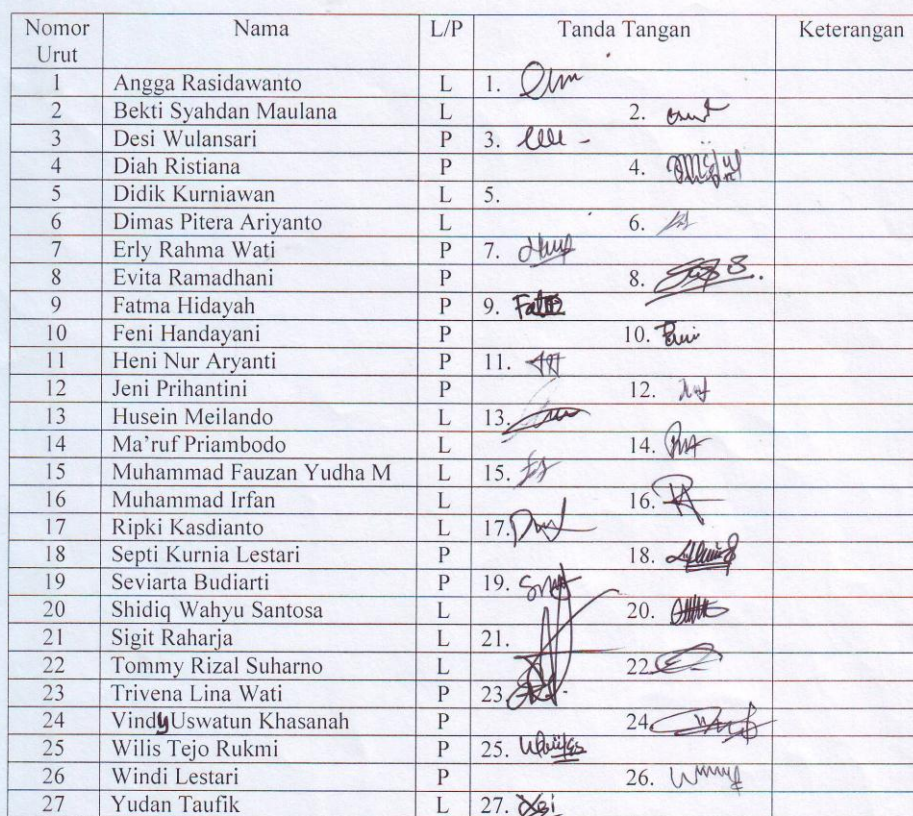 Nomor Urut Nama L/P Tanda Tangan Keterangan
1 Angga Rasidawanto L 1.
2 Bekti Syahdan Maulana L 2.
3 Desi Wulansari P 3.
4 Diah Ristiana P 4.
5 Didik Kurniawan L 5.
6 Dimas Pitera Ariyanto L 6.
7 Erly Rahma Wati P 7.
8 Evita Ramadhani P 8.
9 Fatma Hidayah P 9.
10 Feni Handayani P 10.
11 Heni Nur Aryanti P 11.
12 Jeni Prihantini P 12.
13 Husein Meilando L 13.
14 Ma'ruf Priambodo L 14.
15 Muhammad Fauzan Yudha M L 15.
16 Muhammad Irfan L 16.
17 Ripki Kasdianto L 17.
18 Septi Kurnia Lestari P 18.
19 Seviarta Budiarti P 19.
20 Shidiq Wahyu Santosa L 20.
21 Sigit Raharja L 21.
22 Tommy Rizal Suharno L 22.
23 Trivena Lina Wati P 23.
24 Vindy Uswatun Khasanah P 24.
25 Wilis Tejo Rukmi P 25.
26 Windi Lestari P 26.
27 Yudan Taufik L 27.